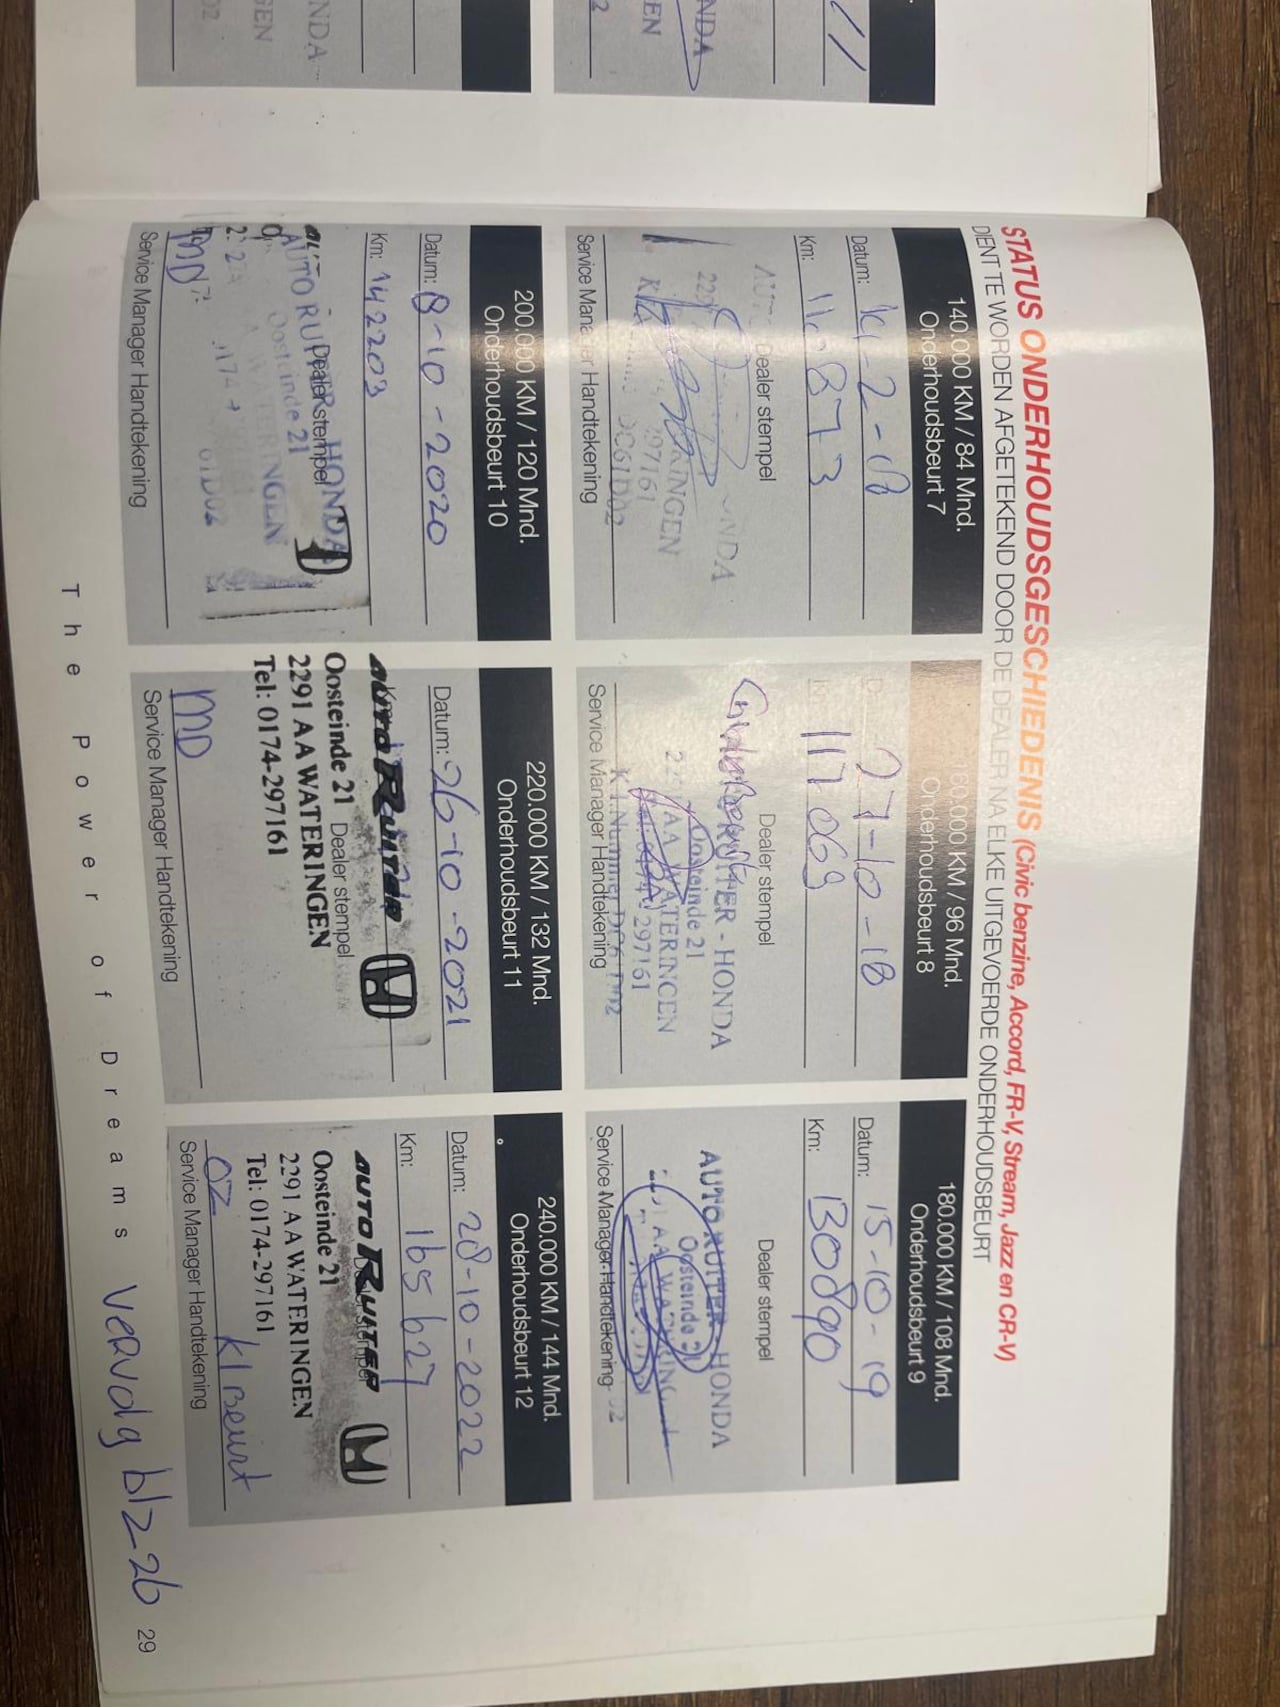 STATUS ONDERHOUDSGESCHIEDENIS (Civic benzine, Accord, FR-V, Stream, Jazz en CR-V)
DIENT TE WORDEN AFGETEKEND DOOR DE DEALER NA ELKE UITGEVOERDE ONDERHOUDSBEURT
140.000 KM / 84 Mnd.
Onderhoudsbeurt 7
Datum: 2-18
Km:
Dealer stempel
Service Manager Handtekening
160.000 KM / 96 Mnd.
Onderhoudsbeurt 8
27-10-18
117069
Dealer stempel
RUITER - HONDA
Oosteinde 21
AA WATERINGEN
297161
Service Manager Handtekening
180.000 KM / 108 Mnd.
Onderhoudsbeurt 9
Datum: 15-10-19
Km: 130890
Dealer stempel
AUTO RUITER - HONDA
Oosteinde 21
Service Manager Handtekening
200.000 KM / 120 Mnd.
Onderhoudsbeurt 10
Datum: 8-10-2020
Km: 142203
Dealer stempel
AUTO RUITER HONDA
Oosteinde 21
MD
Service Manager Handtekening
220.000 KM / 132 Mnd.
Onderhoudsbeurt 11
Datum: 26-10-2021
AUTO RUITER
Oosteinde 21 Dealer stempel
2291 AA WATERINGEN
Tel: 0174-297161
MD
Service Manager Handtekening
240.000 KM / 144 Mnd.
Onderhoudsbeurt 12
Datum: 28-10-2022
Km: 165627
AUTO RUITER
Oosteinde 21
2291 AA WATERINGEN
Tel: 0174-297161
OZ Kl Beurt
Service Manager Handtekening
The Power of Dreams Vervolg blz 26 29